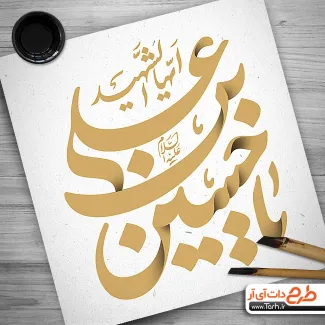 یا حسین بن علی
علیه السلام
ایها الشهید
طرح دات آی آر
www.Tarh.ir